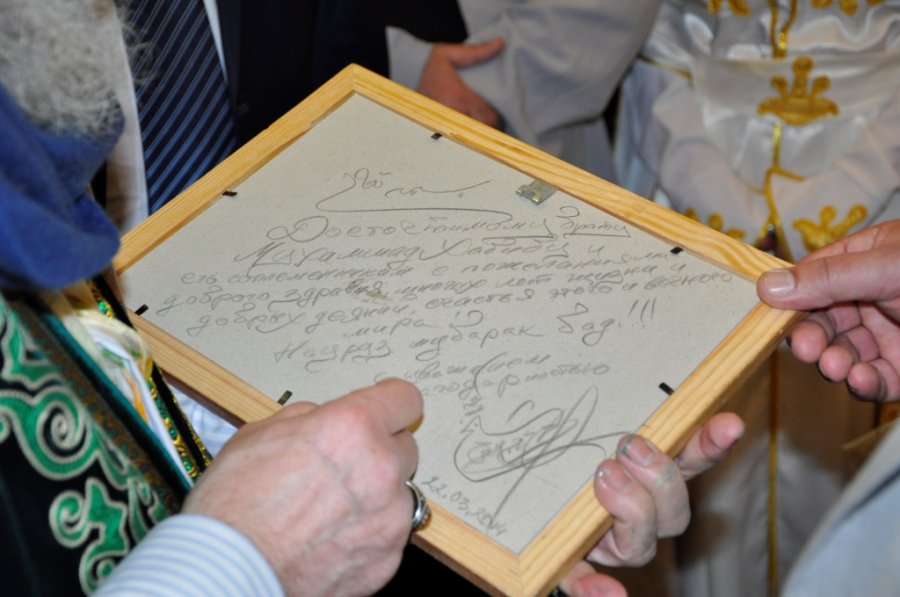 Достостимому брату
Мухаммад Хабибу и
его соплеменникам с пожеланиями
доброго здравия, многих лет жизни и
добрых деяний, счастья этого и вечного
мира!
Надруз мубарак бад!!!
С уважением
благодарностью
22.03.2014